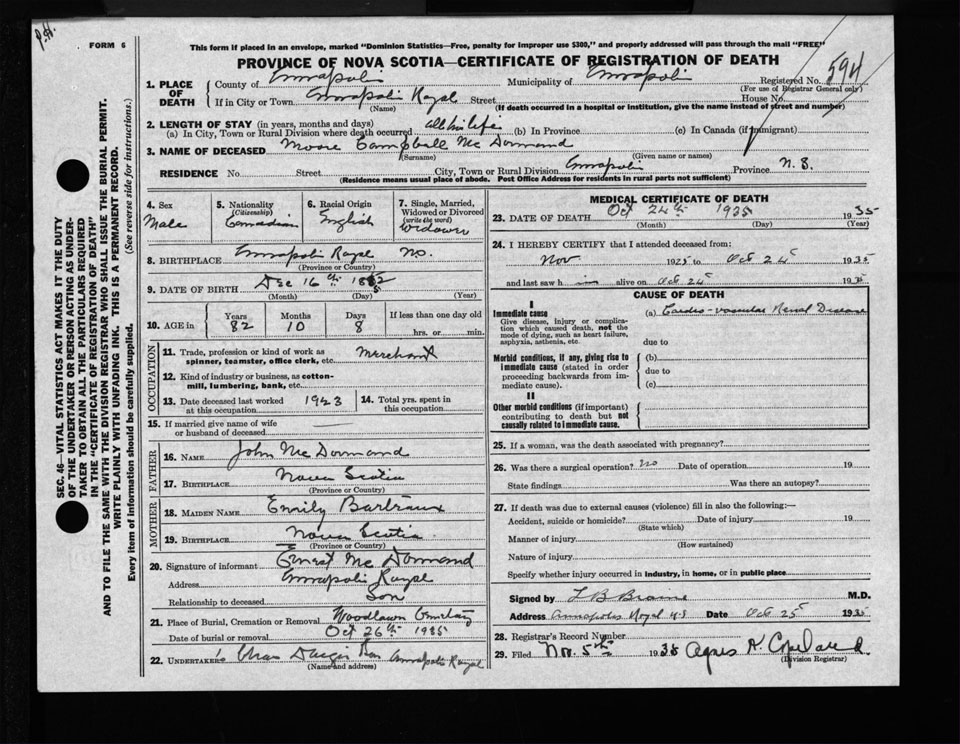 FORM 6
This form if placed in an envelope, marked "Dominion Statistics—Free, penalty for improper use $300," and properly addressed will pass through the mail "FREE"
PROVINCE OF NOVA SCOTIA—CERTIFICATE OF REGISTRATION OF DEATH
1. PLACE OF DEATH
County of Annapolis Municipality of Annapolis Registered No. 594
(For use of Registrar General only)
If in City or Town Annapolis Royal Street House No.
(Name) (If death occurred in a hospital or institution, give the name instead of street and number)
2. LENGTH OF STAY (in years, months and days)
(a) In City, Town or Rural Division where death occurred all his life (b) In Province (c) In Canada (if immigrant)
3. NAME OF DECEASED Moore Campbell Mc Dormand
(Surname) (Given name or names)
RESIDENCE No. Street City, Town or Rural Division Annapolis Province N.S.
(Residence means usual place of abode. Post Office Address for residents in rural parts not sufficient)
4. Sex
Male
5. Nationality
(Citizenship)
Canadian
6. Racial Origin
English
7. Single, Married, Widowed or Divorced
(write the word)
Widower
8. BIRTHPLACE Annapolis Royal N.S.
(Province or Country)
9. DATE OF BIRTH Dec 16th
(Month) (Day) (Year)
10. AGE in
Years Months Days If less than one day old
82 10 8 hrs. or min.
OCCUPATION
11. Trade, profession or kind of work as spinner, teamster, office clerk, etc. Merchant
12. Kind of industry or business, as cotton-mill, lumbering, bank, etc.
13. Date deceased last worked at this occupation 1923
14. Total yrs. spent in this occupation
15. If married give name of wife or husband of deceased
FATHER
16. NAME John Mc Dormand
17. BIRTHPLACE Nova Scotia
(Province or Country)
MOTHER
18. MAIDEN NAME Emily Bartraux
19. BIRTHPLACE Nova Scotia
(Province or Country)
20. Signature of informant Ernest Mc Dormand
Address Annapolis Royal
Relationship to deceased Son
21. Place of Burial, Cremation or Removal Woodlawn Cemetery
Date of burial or removal Oct 26th 1935
22. UNDERTAKER Annapolis Royal
(Name and address)
MEDICAL CERTIFICATE OF DEATH
23. DATE OF DEATH Oct 24th 1935 1935
(Month) (Day) (Year)
24. I HEREBY CERTIFY that I attended deceased from:
Nov 1925 to Oct 24 1935
and last saw h im alive on Oct 24 1935
CAUSE OF DEATH
I
Immediate cause
Give disease, injury or complication which caused death, not the mode of dying, such as heart failure, asphyxia, asthenia, etc.
(a) Cardio-vascular Renal Disease
due to
Morbid conditions, if any, giving rise to immediate cause (stated in order proceeding backwards from immediate cause).
(b)
due to
(c)
II
Other morbid conditions (if important) contributing to death but not causally related to immediate cause.
25. If a woman, was the death associated with pregnancy?
26. Was there a surgical operation? no Date of operation 19
State findings Was there an autopsy?
27. If death was due to external causes (violence) fill in also the following:—
Accident, suicide or homicide? Date of injury 19
(State which)
Manner of injury
(How sustained)
Nature of injury
Specify whether injury occurred in industry, in home, or in public place
Signed by L B Brams M.D.
Address Annapolis Royal N.S Date Oct 25 1935
28. Registrar's Record Number
29. Filed Nov. 5th 1935 Agnes K. Copeland
(Division Registrar)
SEC. 46—VITAL STATISTICS ACT MAKES IT THE DUTY
OF THE UNDERTAKER OR PERSON ACTING AS UNDER-
TAKER TO OBTAIN ALL THE PARTICULARS REQUIRED
IN THE "CERTIFICATE OF REGISTRATION OF DEATH"
AND TO FILE THE SAME WITH THE DIVISION REGISTRAR WHO SHALL ISSUE THE BURIAL PERMIT.
WRITE PLAINLY WITH UNFADING INK. THIS IS A PERMANENT RECORD.
Every item of information should be carefully supplied. (See reverse side for instructions.)